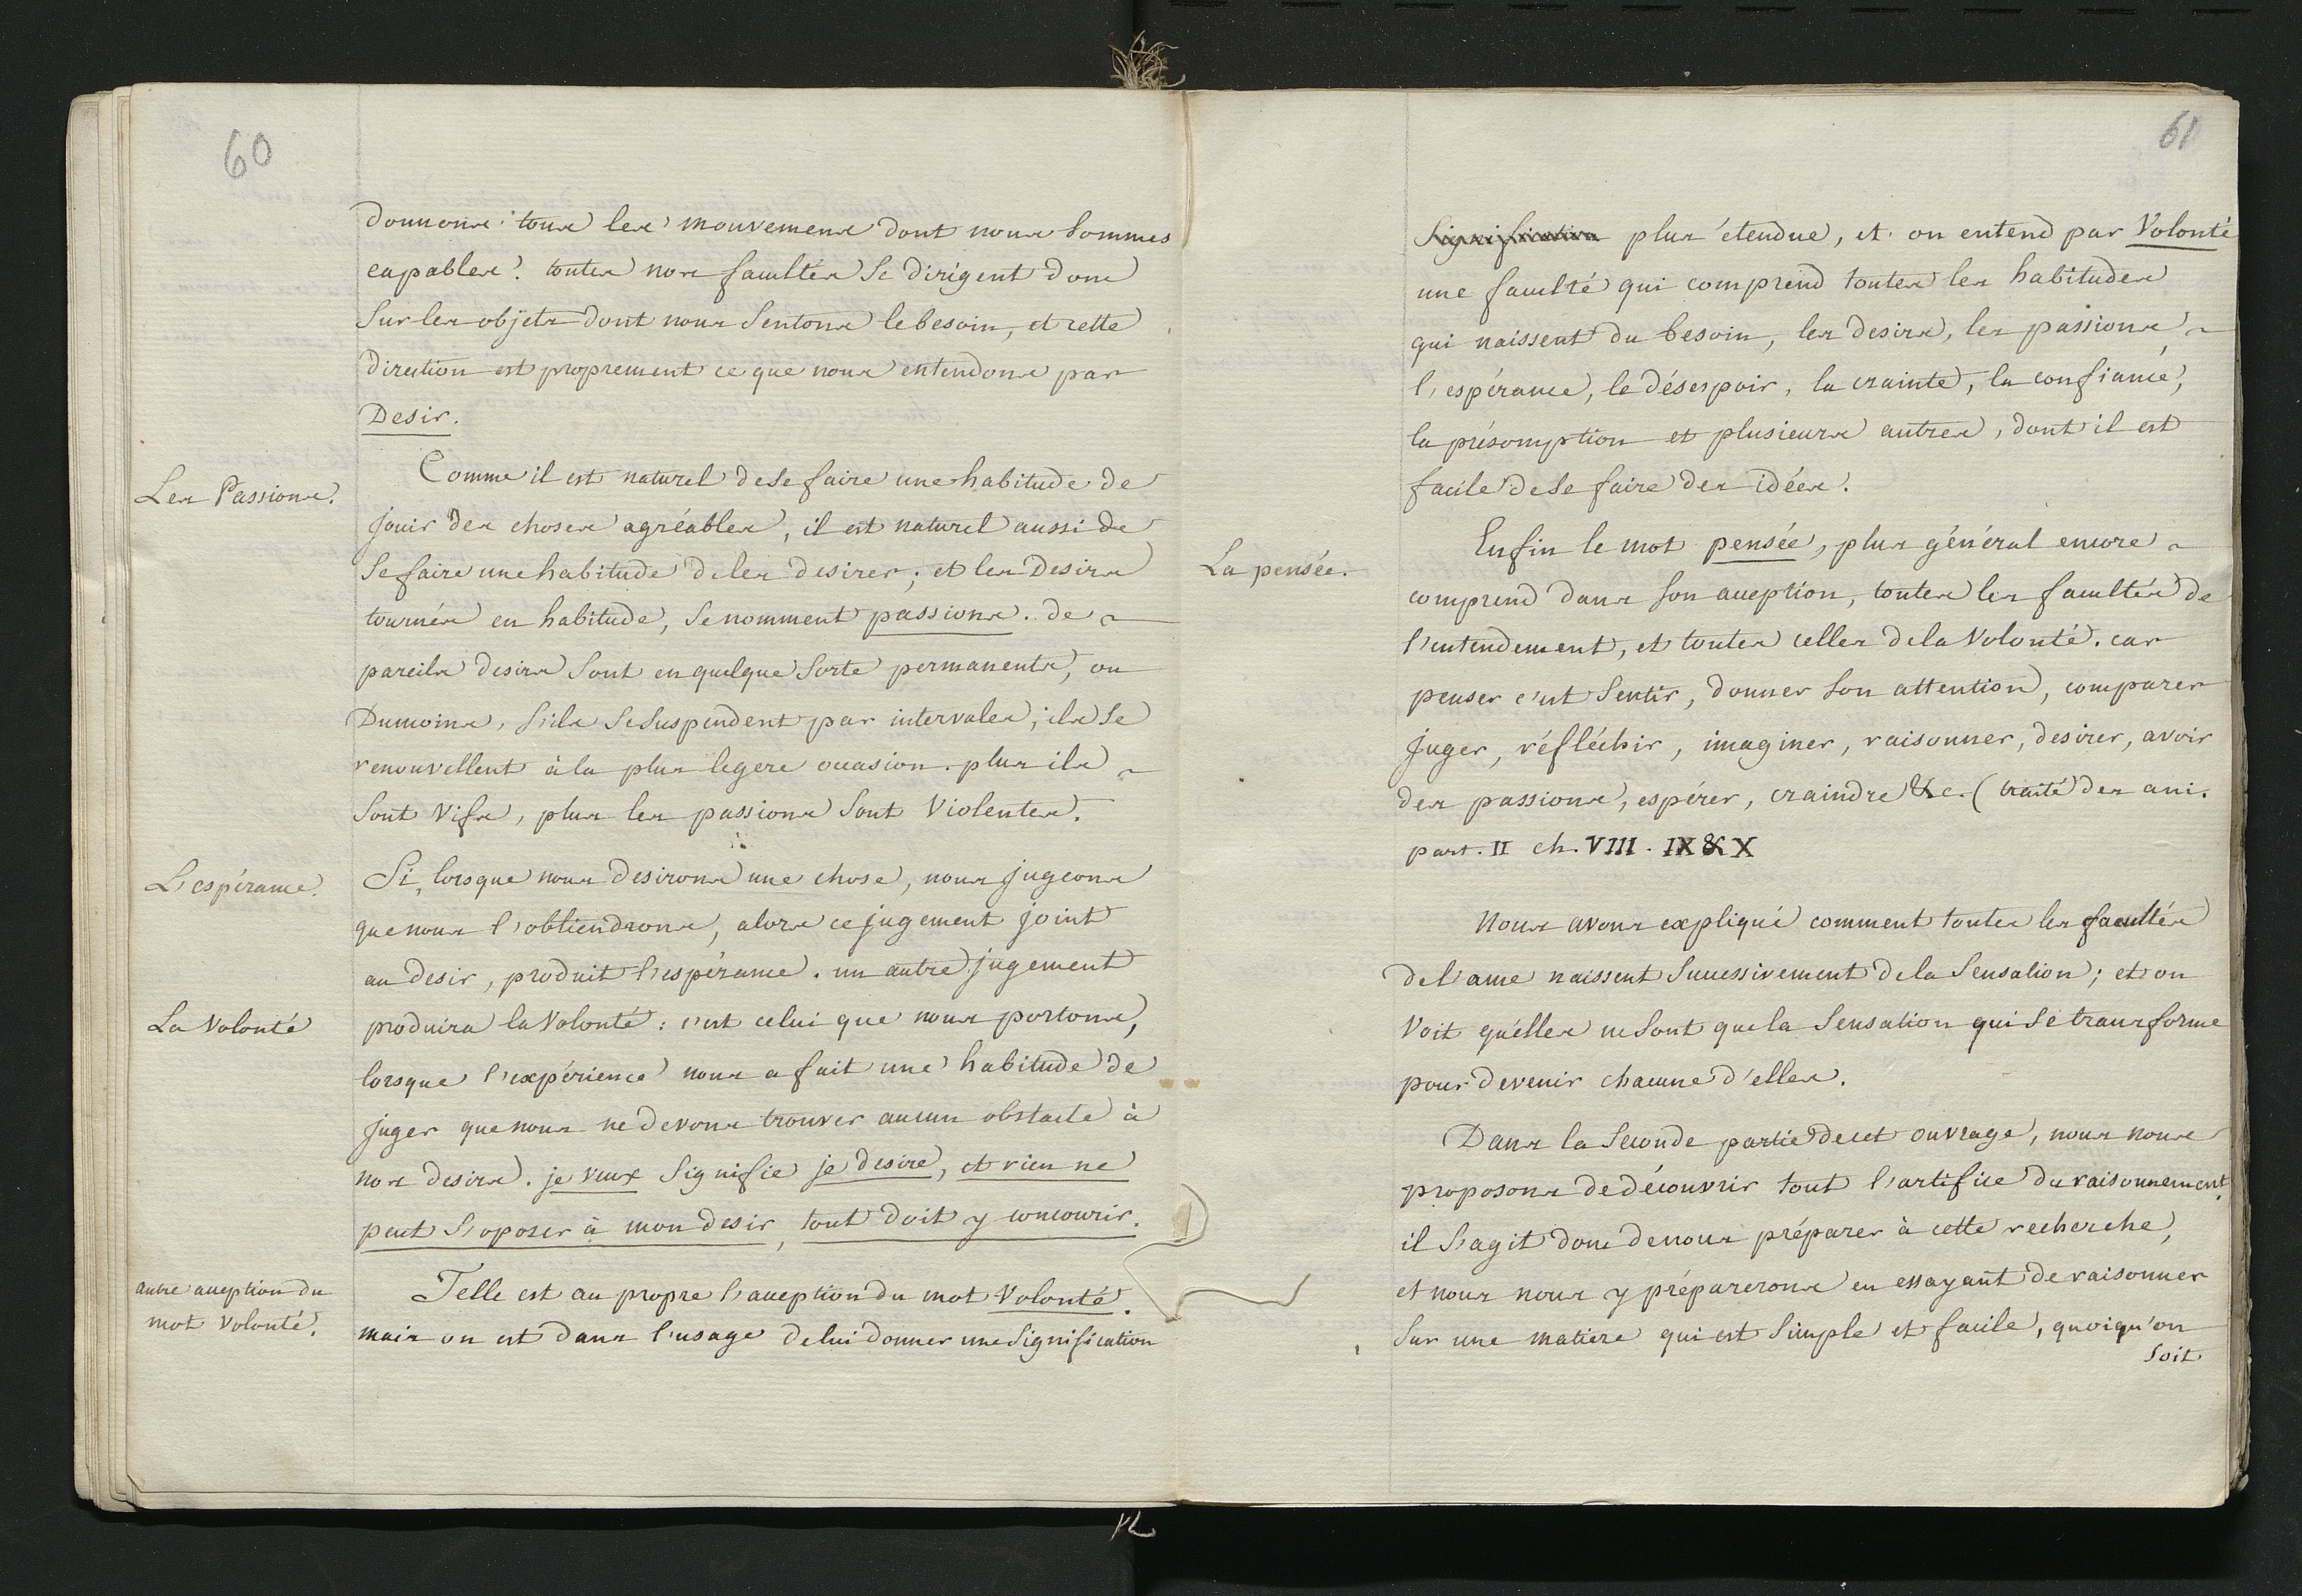 60
donnons tous les mouvemens dont nous sommes
capables. toutes nos facultés se dirigent donc
sur les objets dont nous sentons le besoin, et cette
direction est proprement ce que nous entendons par
Desir.
Les Passions.
Comme il est naturel de se faire une habitude de
jouir des choses agréables, il est naturel aussi de
se faire une habitude de les desirer; et les Desirs
tournés en habitude, se nomment passions. de
pareils desirs sont en quelque sorte permanents, ou
Dumoins, s'ils se suspendent par intervales, ils se
renouvellent à la plus legere occasion. plus ils
sont vifs, plus les passions sont violentes.
L'espérance.
Si, lorsque nous desirons une chose, nous jugeons
que nous l'obtiendrons, alors ce jugement joint
au desir, produit l'espérance. un autre jugement
La Volonté
produira la Volonté: c'est celui que nous portons,
lorsque l'expérience nous a fait une habitude de
juger que nous ne devons trouver aucun obstacle à
nos desirs. je veux signifie je desire, et rien ne
peut s'oposer à mon desir, tout doit y concourir.
autre acception du
mot Volonté.
Telle est au propre l'acception du mot Volonté.
mais on est dans l'usage de lui donner une signification
61
Signification plus étendue, et on entend par Volonté
une faculté qui comprend toutes les habitudes
qui naissent du besoin, les desirs, les passions,
l'espérance, le désespoir, la crainte, la confiance,
la présomption et plusieurs autres, dont il est
facile de se faire des idées.
La pensée.
Enfin le mot pensée, plus général encore
comprend dans son acception, toutes les facultés de
l'entendement, et toutes celles de la Volonté. car
penser c'est sentir, donner son attention, comparer
juger, réfléchir, imaginer, raisonner, desirer, avoir
des passions, espérer, craindre &c. (traité des ani.
part. II ch. VIII. IX & X
Nous avons expliqué comment toutes les facultés
de l'ame naissent successivement de la sensation; et on
voit qu'elles ne sont que la sensation qui se transforme
pour devenir chacune d'elles.
Dans la seconde partie de cet ouvrage, nous nous
proposons de découvrir tout l'artifice du raisonnement.
il s'agit donc de nous préparer à cette recherche,
et nous nous y préparerons en essayant de raisonner
sur une matiere qui est simple et facile, quoiqu'on
soit